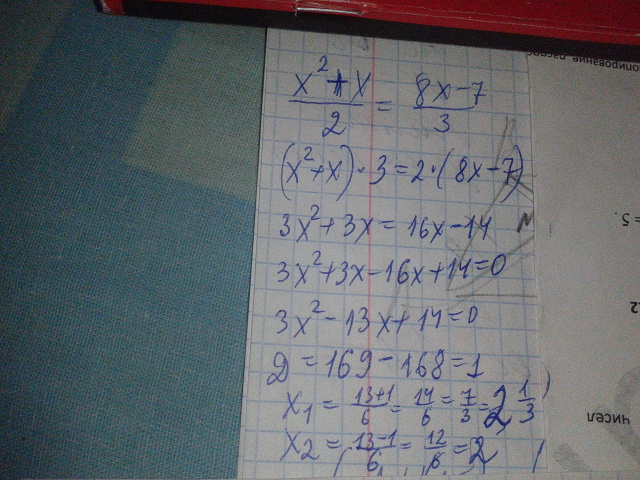 x²+x/2 = 8x-7/3
(x²+x)·3=2·(8x-7)
3x²+3x=16x-14
3x²+3x-16x+14=0
3x²-13x+14=0
D=169-168=1
x₁=13+1/6=14/6=7/3=2 1/3
x₂=13-1/6=12/6=2
= 5.
чисел